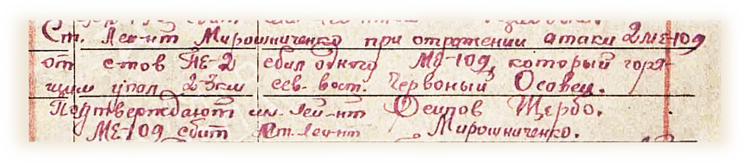 Ст. Лей-нт Мирошниченко при отражении атаки 2 МЕ-109
от с-тов ПЕ-2 сбил одного МЕ-109, который горя-
щим упал 2-3 км сев. вост. Червоный Осовец.
Подтверждают мл. лей-нт Осипов Щербо.
МЕ-109 сбит Ст. лей-нт Мирошниченко.